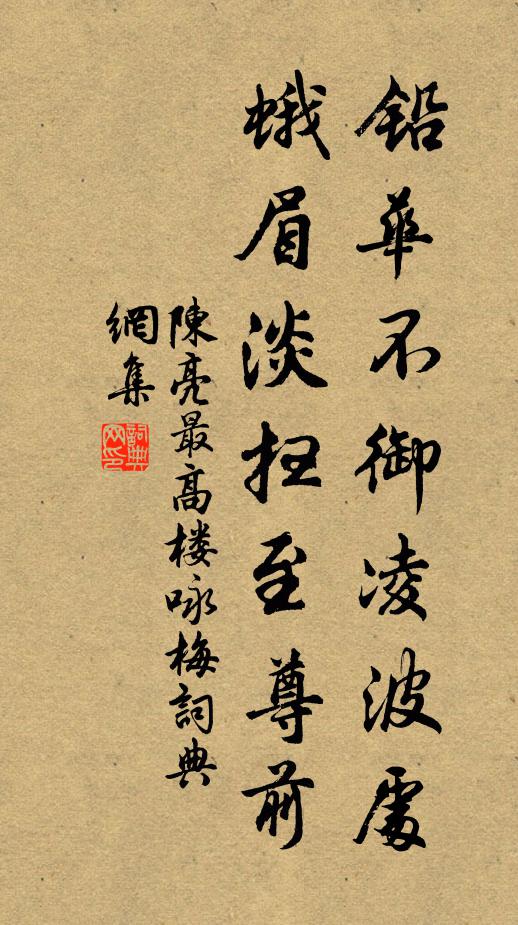 鉛華不御凌波處
蛾眉淡扫至尊前
陳亮最高楼咏梅詞典
網集
詞典网印